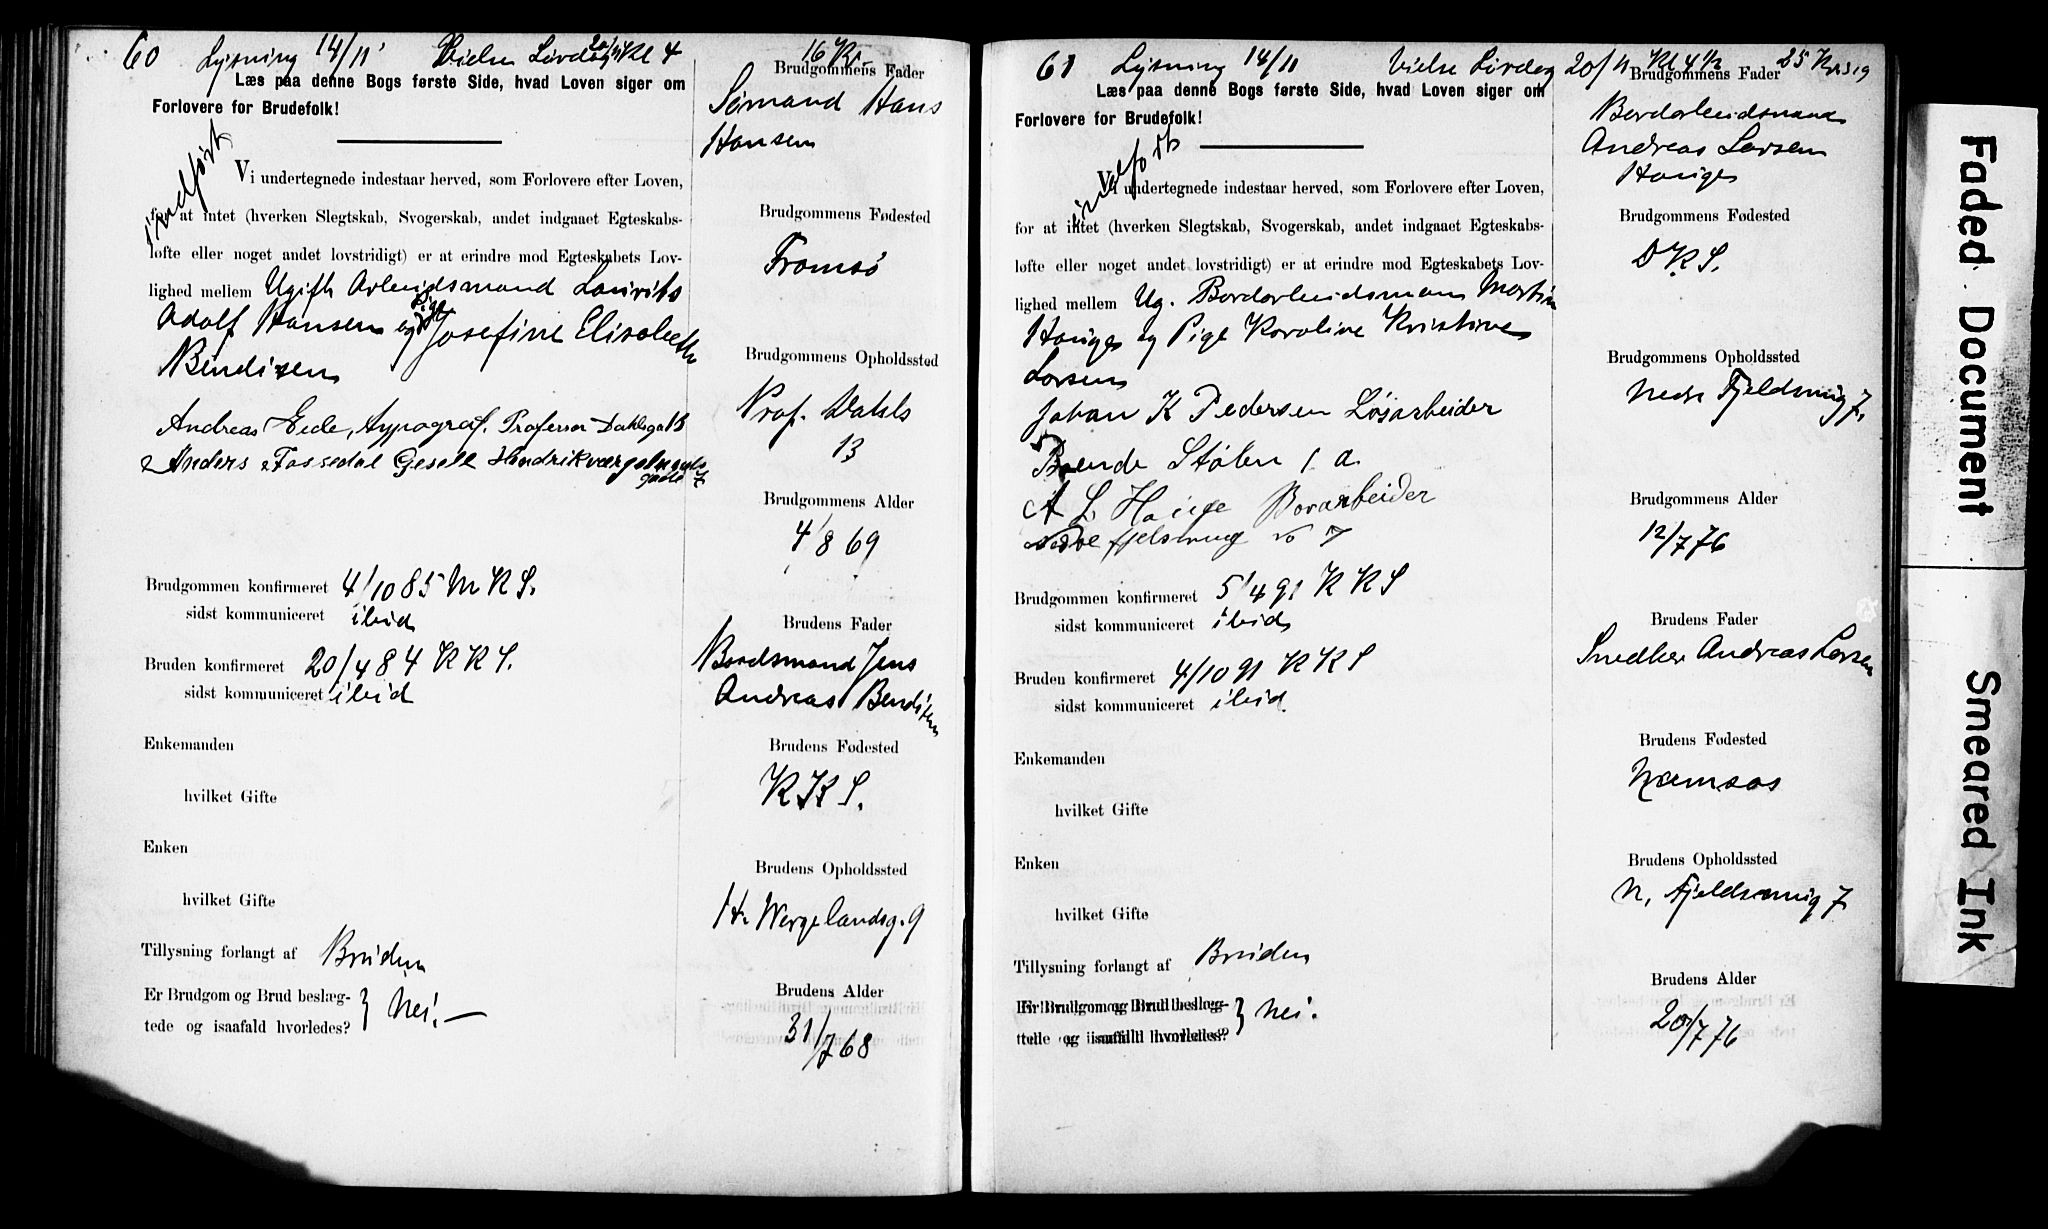 60 Lysning 14/11 Vielse Lørdag 20/11 Kl 4 16 Kr.
Læs paa denne Bogs første Side, hvad Loven siger om
Forlovere for Brudefolk!
indført
Vi undertegnede indestaar herved, som Forlovere efter Loven,
for at intet (hverken Slegtskab, Svogerskab, andet indgaaet Egteskabs-
løfte eller noget andet lovstridigt) er at erindre mod Egteskabets Lov-
lighed mellem Ugift Arbeidsmand Laurits
Adolf Hansen og Pige Josefine Elisabeth
Bendixen
Andreas Eide, Typograf. Professor Dahlsga 13
Anders Fossedal Gesell Hendrikværgelands
gade
Brudgommen konfirmeret 4/10 85 M K S.
sidst kommuniceret ibid
Bruden konfirmeret 20/4 84 K K S.
sidst kommuniceret ibid
Enkemanden
hvilket Gifte
Enken
hvilket Gifte
Tillysning forlangt af Bruden
Er Brudgom og Brud beslæg-
tede og isaafald hvorledes? } Nei. —
Brudgommens Fader
Sømand Hans
Hansen
Brudgommens Fødested
Tromsø
Brudgommens Opholdssted
Prof. Dahls
13
Brudgommens Alder
4/8 69
Brudens Fader
Baadsmand Jens
Andreas Bendixen
Brudens Fødested
K K S.
Brudens Opholdssted
H. Wergelandsg. 9
Brudens Alder
31/7 68
61 Lysning 14/11 Vielse Lørdag 20/11 Kl 4 1/2 25 Kr
Læs paa denne Bogs første Side, hvad Loven siger om
Forlovere for Brudefolk!
indført
Vi undertegnede indestaar herved, som Forlovere efter Loven,
for at intet (hverken Slegtskab, Svogerskab, andet indgaaet Egteskabs-
løfte eller noget andet lovstridigt) er at erindre mod Egteskabets Lov-
lighed mellem Ug. Bordarbeidsmand Martin
Hauge og Pige Karoline Kristine
Larsen
Johan K Pedersen Løsarbeider
Stølen 1 a
A L Hauge Borarbeider
Nedre fjelsmug No 7
Brudgommen konfirmeret 5/4 91 K K S
sidst kommuniceret ibid
Bruden konfirmeret 4/10 91 K K S
sidst kommuniceret ibid.
Enkemanden
hvilket Gifte
Enken
hvilket Gifte
Tillysning forlangt af Bruden
Er Brudgom og Brud beslæg-
tede og isaafald hvorledes? } Nei.
Brudgommens Fader
Bordarbeidsmand
Andreas Larsen
Hauge
Brudgommens Fødested
D K S.
Brudgommens Opholdssted
Nedre Fjeldsmug 7.
Brudgommens Alder
12/7 76
Brudens Fader
Snedker Andreas Larsen
Brudens Fødested
Namsos
Brudens Opholdssted
N. Fjeldsmug 7
Brudens Alder
20/7 76
Faded Document
Smeared Ink